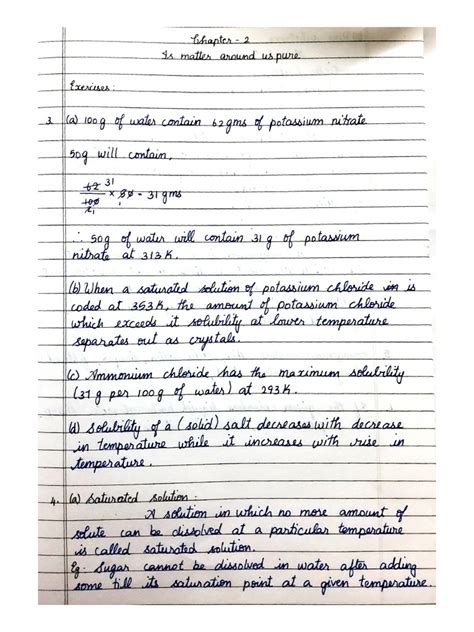 Chapter - 2
Is matter around us pure
Exercises:
3. (a) 100g of water contain 62gms of potassium nitrate
50g will contain,
62 31
/100 × 50 = 31 gms
2 1 1
∴ 50g of water will contain 31 g of potassium
nitrate at 313 K.
(b) When a saturated solution of potassium chloride im is
cooled at 353K, the amount of potassium chloride
which exceeds it solubility at lower temperature
separates out as crystals.
(c) Ammonium chloride has the maximum solubility
(37 g per 100 g of water) at 293 K.
(d) Solubility of a (solid) salt decreases with decrease
in temperature while it increases with rise in
temperature.
4. (a) Saturated solution :
A solution in which no more amount of
solute can be dissolved at a particular temperature
is called saturated solution.
Eg: Sugar cannot be dissolved in water after adding
some till its saturation point at a given temperature.